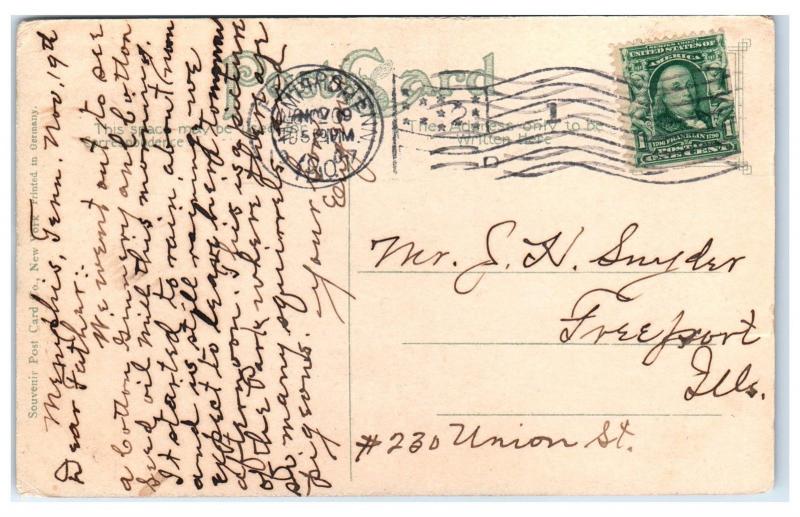 Post Card
This space may be
The Address only to be
Written Here
SERIES 1902
UNITED STATES OF
AMERICA
1790 FRANKLIN 1790
POSTAGE
1 ONE CENT 1
MEMPHIS, TENN.
NOV 19
5 PM
1907
Memphis, Tenn. Nov. 19th
Dear Father:-
We went out to see
a cotton Ginnery and cotton
seed oil mill this morning.
It started to rain about noon
and is still raining. We
expect to leave here tomorrow
afternoon. This is a picture
of the Park where there are
so many squirrels and
pigeons.
Your
Mr. J. H. Snyder
Freeport
Ills.
#230 Union St.
Souvenir Post Card Co., New York. Printed in Germany.